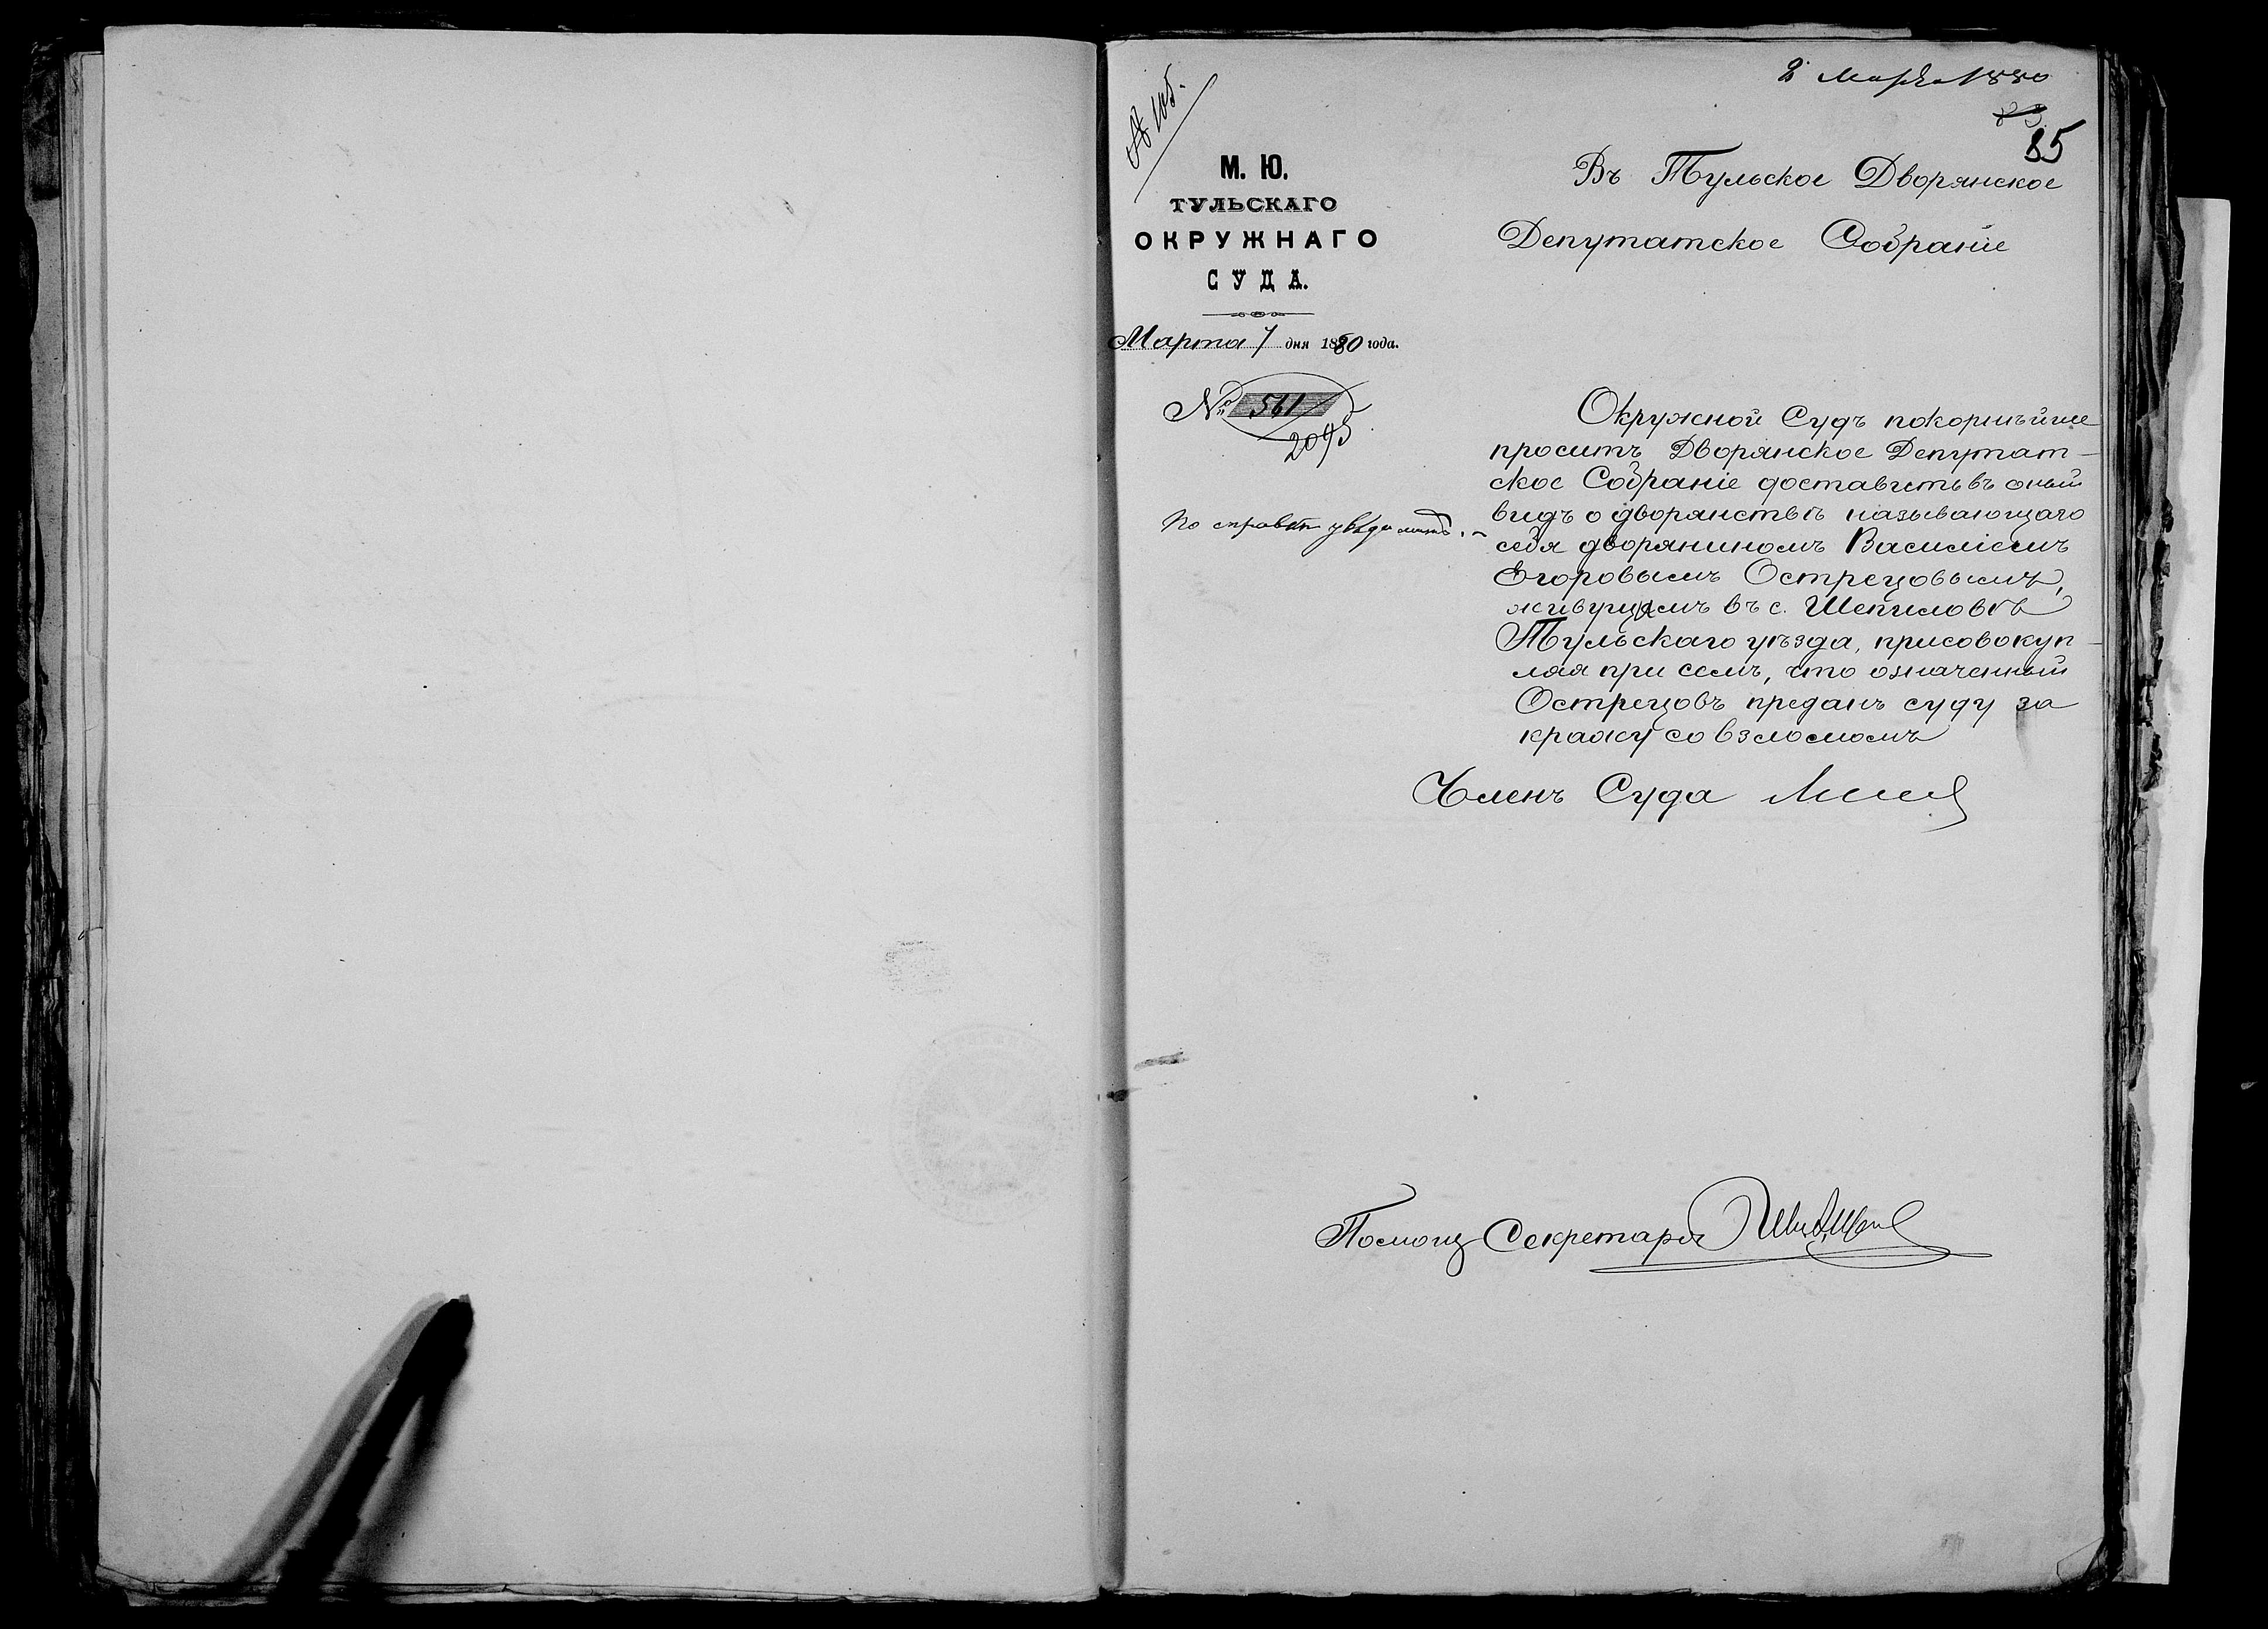 8 Марта 1880
№ 105.
85
М. Ю.
ТУЛЬСКАГО
ОКРУЖНАГО
СУДА.
Марта 7 дня 1880 года.
№ 561
2095
По справкѣ увѣдомить.
Въ Тульское Дворянское
Депутатское Собраніе
Окружной Судъ покорнѣйше
проситъ Дворянское Депутат-
ское Собраніе доставить въ оный
видъ о дворянствѣ называющаго
себя дворяниномъ Василіемъ
ЕгоровымъОстрецовымъ,
живущимъ въ с. Шепиловѣ
Тульскаго уѣзда, присовокуп-
ляя при семъ, что означенный
Острецовъ преданъ суду за
кражу со взломомъ
Членъ Суда
Помощ Секретаря